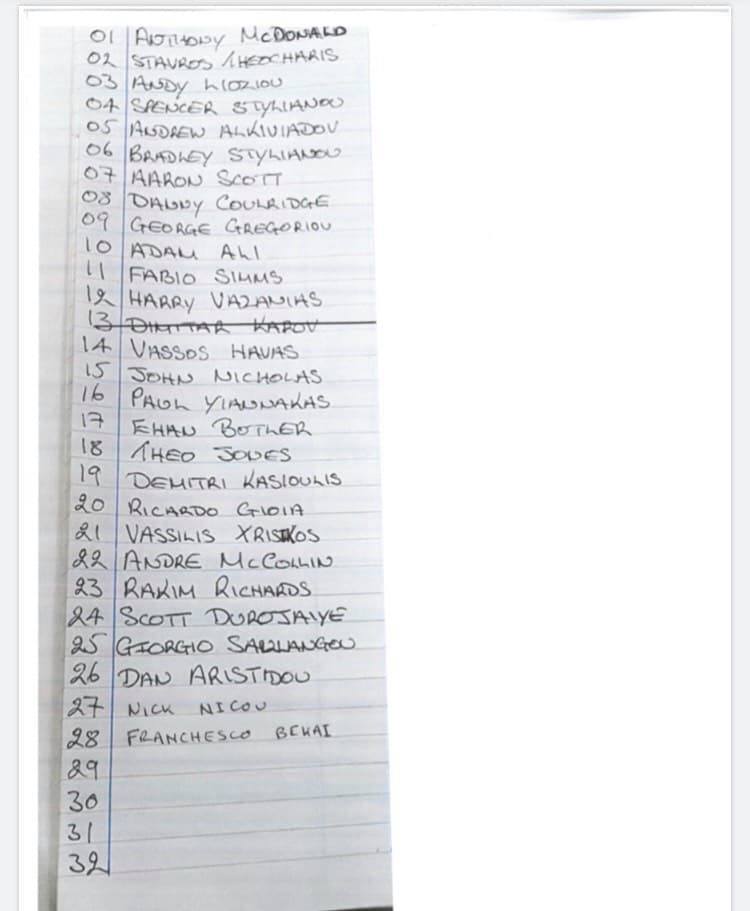 01 ANTHONY McDONALD
02 STAVROS THEOCHARIS
03 ANDY LIOZIOU
04 SPENCER STYLIANOU
05 ANDREW ALKIVIADOU
06 BRADLEY STYLIANOU
07 AARON SCOTT
08 DANNY COULRIDGE
09 GEORGE GREGORIOU
10 ADAM ALI
11 FABIO SIMMS
12 HARRY VAZANIAS
13 DIMITAR KAROV
14 VASSOS HAVAS
15 JOHN NICHOLAS
16 PAUL YIANNAKAS
17 EHAN BUTLER
18 THEO JONES
19 DEMITRI KASIOULIS
20 RICARDO GIOIA
21 VASSILIS
22 ANDRE McCOLLIN
23 RAKIM RICHARDS
24 SCOTT DUROJAIYE
25 GIORGIO
26 DAN ARISTIDOU
27 NICK NICOU
28 FRANCHESCO BEKAI
29
30
31
32